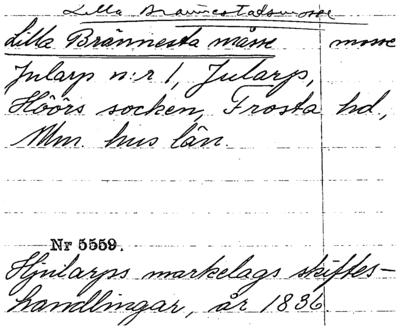 Lilla Brännestadsmosse
Lilla Brännesta måsse mosse
Jularp n:r 1, Jularp,
Höörs socken, Frosta hd,
Mm. hus län.
Nr 5559.
Hjularps markelags skiftes-
handlingar, år 1836